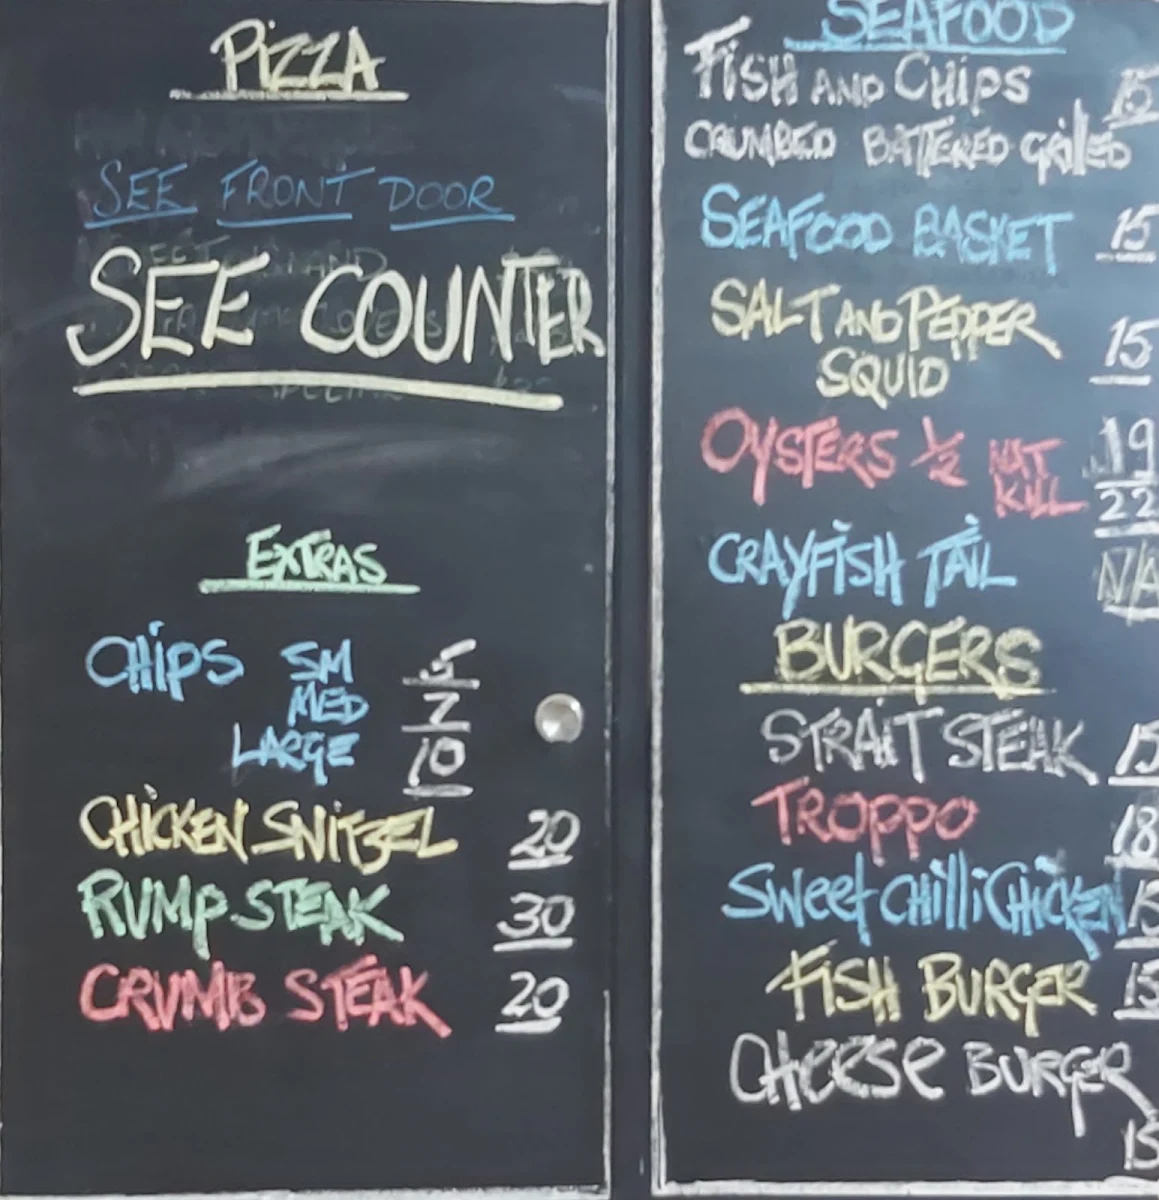 PiZZA
SEE FRONT DOOR
SEE COUNTER
EXTRAS
CHiPS SM 5
MED 7
LARGE 10
CHiCKEN SNiTZEL 20
RUMP STEAK 30
CRUMB STEAK 20
SEAFOOD
FiSH AND CHiPS 15
CRUMBED BATTERED GRillED
SEAFOOD BASKET 15
SALT AND PEPPER
SQUID 15
OYSTERS 1/2 NAT 19
KiLL 22
CRAYFiSH TAiL N/A
BURGERS
STRAiT STEAK 15
TROPPO 18
Sweet CHilli CHiCKEN 15
FiSH BURGER 15
CHeese BURGER
15